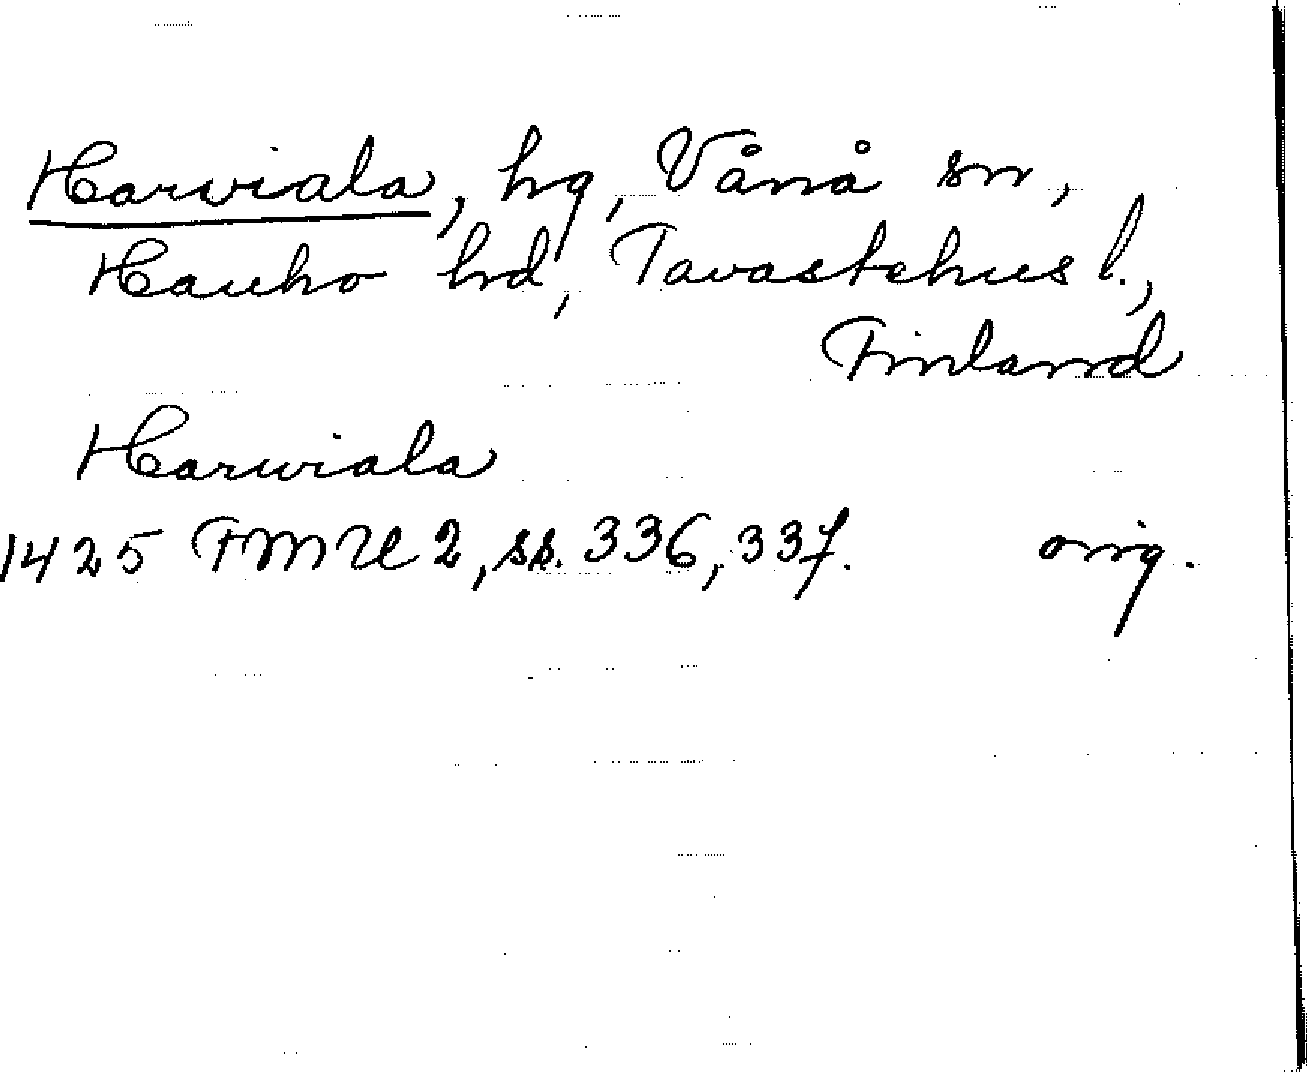 Harviala, hg, Vånå sn,
Hauho hd, Tavastehus l.,
Finland
Harwiala
1425 FMU 2, ss. 336, 337. orig.